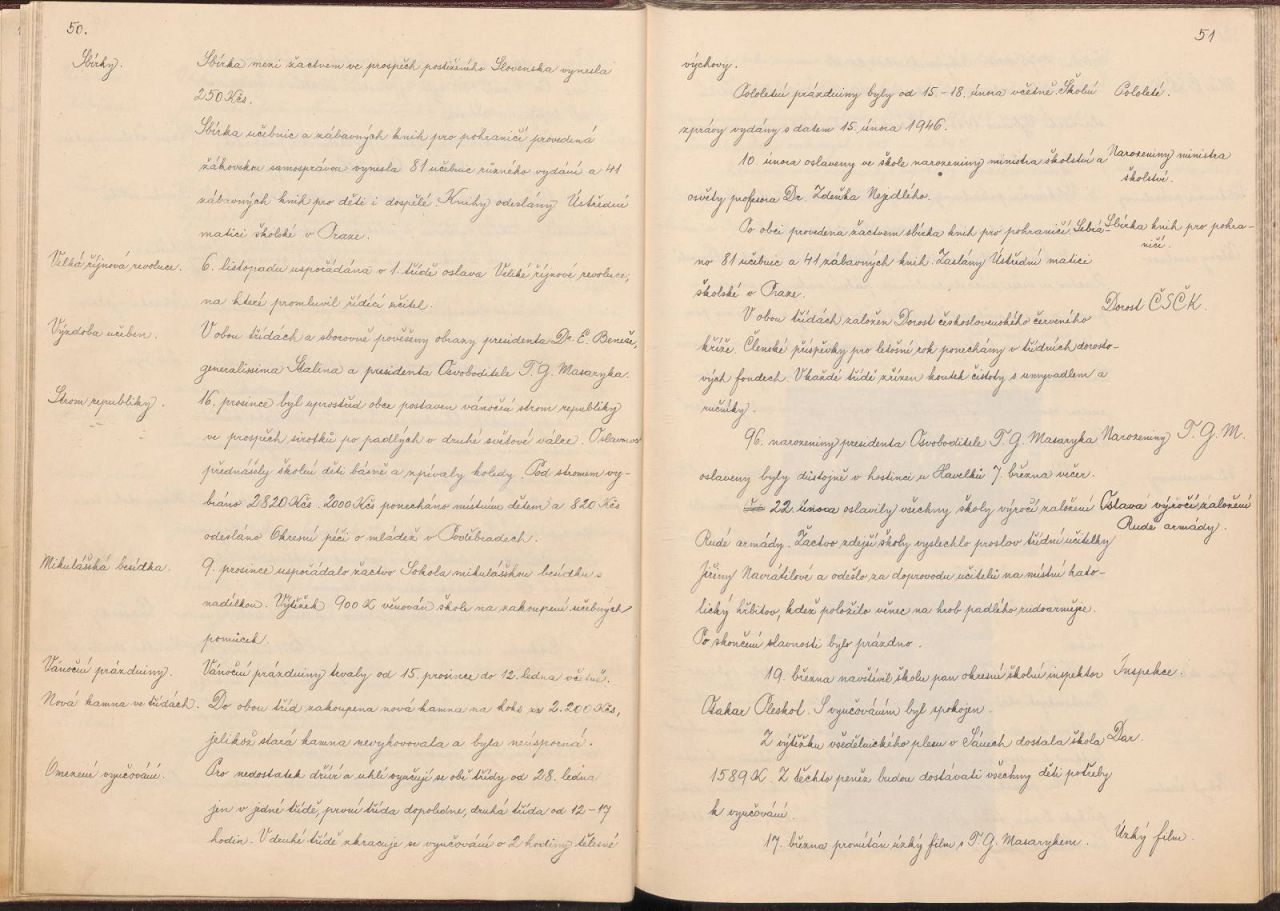 50.
Sbírky.
Sbírka mezi žactvem ve prospěch postiženého Slovenska vynesla
250 Kčs.
Sbírka učebnic a zábavných knih pro pohraničí provedená
žákovskou samosprávou vynesla 81 učebnic různého vydání a 41
zábavných knih pro děti i dospělé. Knihy odeslány Ústřední
matici školské v Praze.
Velká říjnová revoluce.
6. listopadu uspořádána v 1. třídě oslava Veliké říjnové revoluce,
na které promluvil řídící učitel.
Výzdoba učeben.
V obou třídách a sborovně pověšeny obrazy presidenta Dr. E. Beneše,
generalissima Stalina a presidenta Osvoboditele T. G. Masaryka.
Strom republiky.
16. prosince byl uprostřed obce postaven vánoční strom republiky
ve prospěch sirotků po padlých v druhé světové válce. Oslavnou
přednášely školní děti básně a zpívaly koledy. Pod stromem vy-
bráno 2820 Kčs. 2000 Kčs ponecháno místním dětem a 820 Kčs
odesláno Okresní péči o mládež v Poděbradech.
Mikulášská besídka.
9. prosince uspořádalo žactvo Sokola mikulášskou besídku s
nadílkou. Výtěžek 900 K věnován škole na zakoupení učebných
pomůcek.
Vánoční prázdniny.
Vánoční prázdniny trvaly od 15. prosince do 12. ledna včetně.
Nová kamna ve třídách.
Do obou tříd zakoupena nová kamna na koks za 2.200 Kčs,
jelikož stará kamna nevyhovovala a byla neúsporná.
Omezení vyučování.
Pro nedostatek dříví a uhlí vyučují se obě třídy od 28. ledna
jen v jedné třídě, první třída dopoledne, druhá třída od 12–17
hodin. V druhé třídě zkracuje se vyučování o 2 hodiny tělesné
51
výchovy.
Pololetní prázdniny byly od 15–18. února včetně. Školní
Pololetí.
zprávy vydány s datem 15. února 1946.
10. února oslaveny ve škole narozeniny ministra školství a
Narozeniny ministra
školství.
osvěty profesora Dr. Zdeňka Nejedlého.
Po obci provedena žactvem sbírka knih pro pohraničí. Sebrá-
Sbírka knih pro pohra-
ničí.
no 81 učebnic a 41 zábavných knih. Zaslány Ústřední matici
školské v Praze.
Dorost ČSČK
V obou třídách založen Dorost československého červeného
kříže. Členské příspěvky pro letošní rok ponechány v třídních dorosto-
vých fondech. V každé třídě zřízen koutek čistoty s umyvadlem a
ručníky.
96. narozeniny presidenta Osvoboditele T. G. Masaryka
Narozeniny T. G. M.
oslaveny byly důstojně v hostinci u Havelků 7. března večer.
22. února oslavily všechny školy výročí založení
Oslava výročí založení
Rudé armády.
Rudé armády. Žactvo zdejší školy vyslechlo proslov třídní učitelky
Jiřiny Navrátilové a odešlo za doprovodu učitelů na místní kato-
lický hřbitov, kdež položilo věnec na hrob padlého rudoarmějce.
Po skončení slavnosti bylo prázdno.
19. března navštívil školu pan okresní školní inspektor
Inspekce.
Otakar Pleskot. S vyučováním byl spokojen.
Z výtěžku všedělnického plesu v Sánech dostala škola
Dar.
1589 K. Z těchto peněz budou dostávati všechny děti potřeby
k vyučování.
17. března promítán úzký film s T. G. Masarykem.
Úzký film.